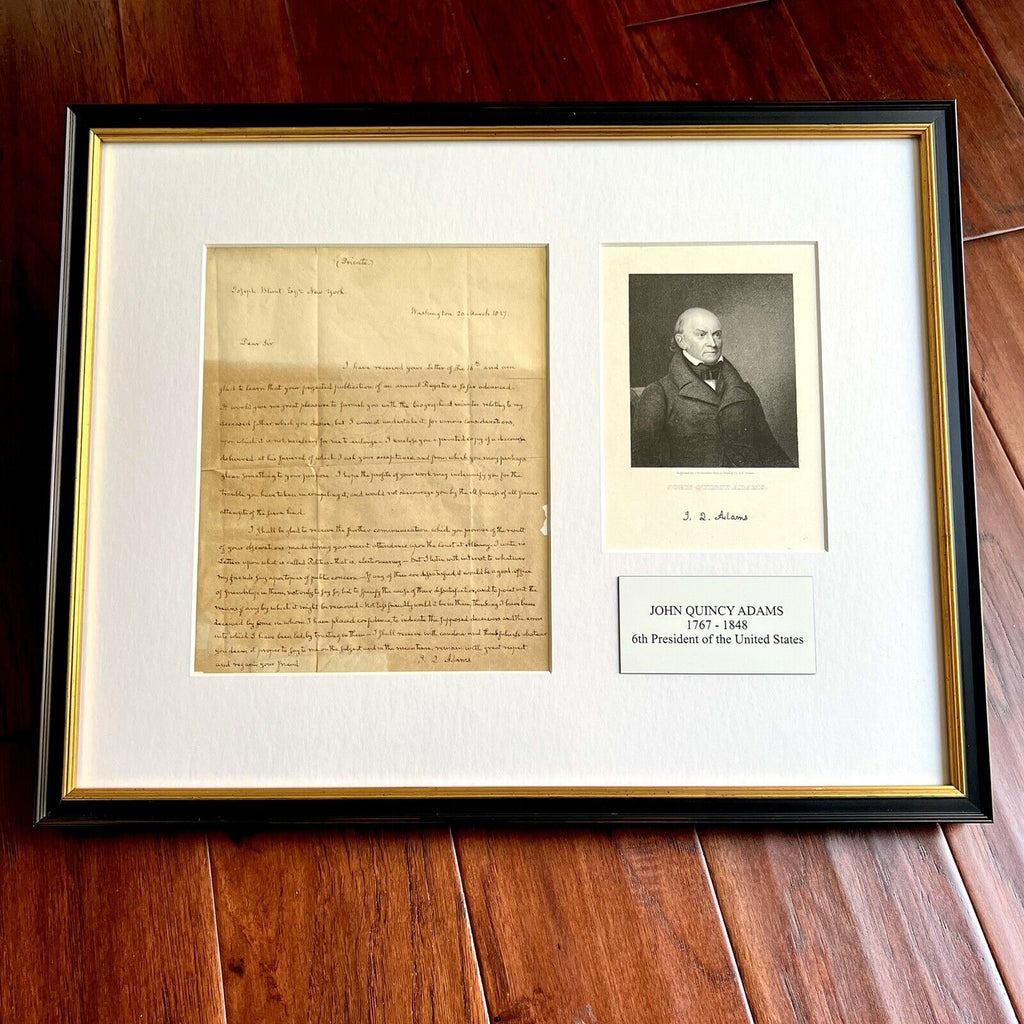 (Private.)
Joseph Blunt Esqr. New York.
Washington 20 March 1827.
Dear Sir
I have received your Letter of the 16th and am
glad to learn that your projected publication of an annual Register is so far advanced.
It would give me great pleasure to furnish you with the biographical minutes relating to my
deceased father which you desire, but I cannot undertake it, for various considerations,
upon which it is not necessary for me to enlarge. I enclose you a printed copy of a discourse
delivered at his funeral of which I ask your acceptance and from which you may perhaps
glean something to your purpose. I hope the profits of your work may indemnify you for the
trouble you have taken in compiling it, and would not discourage you by the ill success of all former
attempts of the same kind.
I shall be glad to receive the further communication which you promise of the result
of your observations made during your recent attendance upon the Court at Albany. I write no
Letters upon what is called Politics - that is electioneering - but I listen with interest to whatever
my friends say upon topics of public concern. If any of them are dissatisfied, it would be a good office
of friendship in them, not only to say so, but to specify the cause of their dissatisfaction, and to point out the
means if any by which it might be removed - Not less friendly would it be in them, thinking I have been
deceived by some in whom I have placed confidence, to indicate the supposed deceivers and the errors
into which I have been led by trusting in them - I shall receive with candour and thankfulness whatever
you deem it proper to say to me on the subject and in the mean time, remain with great respect
and regard your friend J. Q. Adams
JOHN QUINCY ADAMS.
J. Q. Adams
JOHN QUINCY ADAMS
1767 - 1848
6th President of the United States